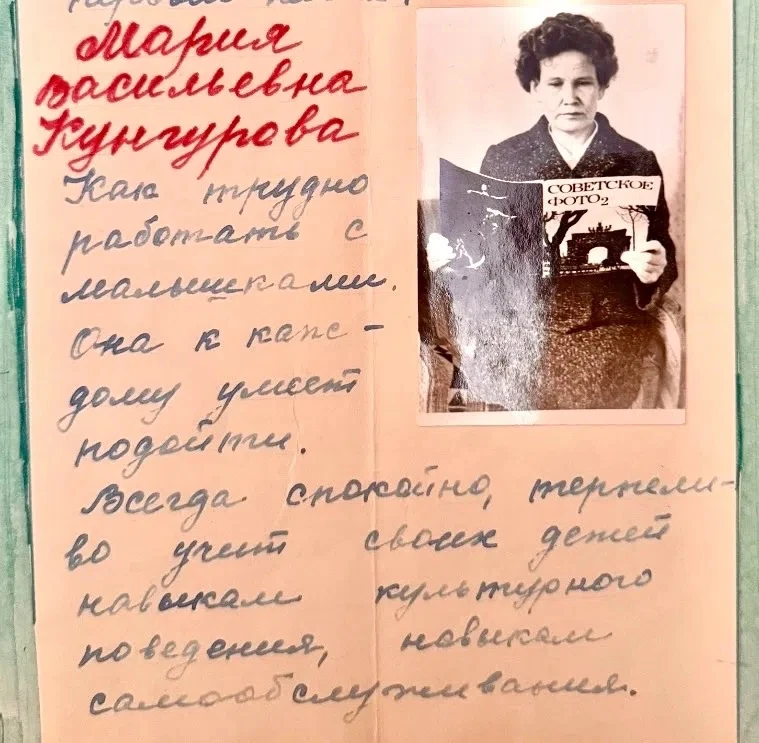 Мария
Васильевна
Кунгурова
Как трудно
работать с
малышками.
Она к каж-
дому умеет
подойти.
Всегда спокойно, терпели-
во учит своих детей
навыкам культурного
поведения, навыкам
самообслуживания.
СОВЕТСКОЕ
ФОТО2